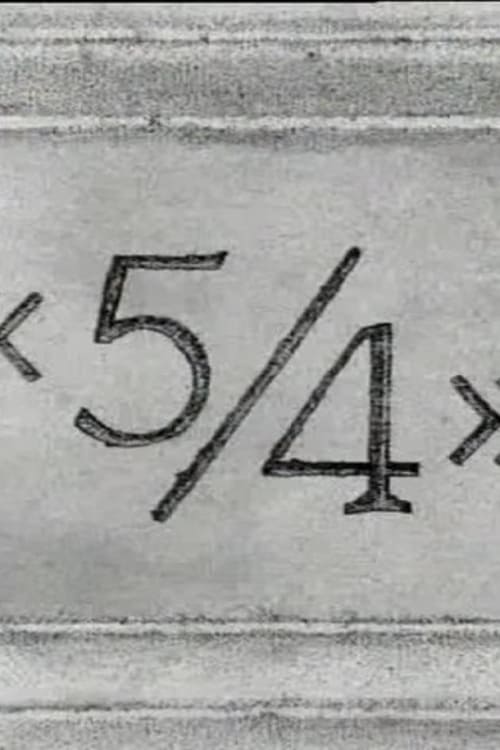 «5/4»